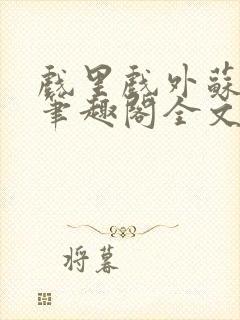 戲里戲外蘇
筆趣閣全文
将暮